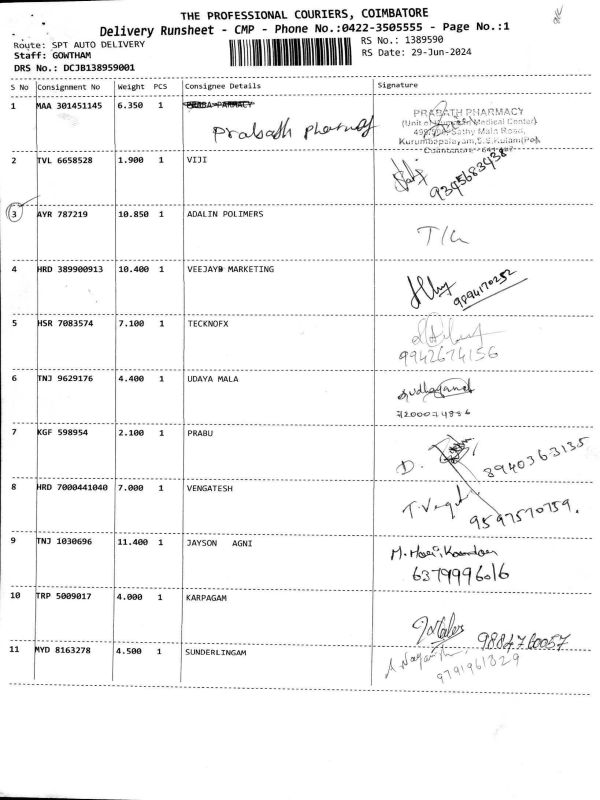 THE PROFESSIONAL COURIERS, COIMBATORE
Delivery Runsheet - CMP - Phone No.:0422-3505555 - Page No.:1
Route: SPT AUTO DELIVERY RS No.: 1389590
Staff: GOWTHAM RS Date: 29-Jun-2024
DRS No.: DCJB138959001
S No Consignment No Weight PCS Consignee Details Signature
1 MAA 301451145 6.350 1 PRABA PARMACY
Prabath Pharmacy
PRABATH PHARMACY
Medical Center)
Sathy Main Road,
Kurumbapalayam, S.S.Kulam(Po),
Coimbatore
2 TVL 6658528 1.900 1 VIJI
9345683438
3 AYR 787219 10.850 1 ADALIN POLIMERS
4 HRD 389900913 10.400 1 VEEJAYD MARKETING
9894170252
5 HSR 7083574 7.100 1 TECKNOFX
9942674156
6 TNJ 9629176 4.400 1 UDAYA MALA
7200074884
7 KGF 598954 2.100 1 PRABU
D. 8940363135
8 HRD 7000441040 7.000 1 VENGATESH
9597570759.
9 TNJ 1030696 11.400 1 JAYSON AGNI
6379996016
10 TRP 5009017 4.000 1 KARPAGAM
9884760057
11 MYD 8163278 4.500 1 SUNDERLINGAM
9791961329